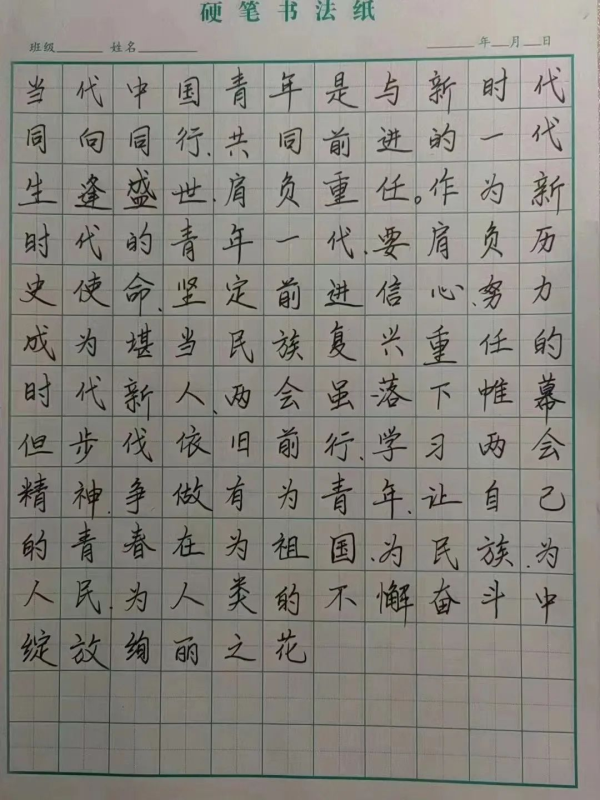 硬笔书法纸
班级 姓名 年 月 日
当代中国青年是与新时代
同向同行、共同前进的一代
生逢盛世、肩负重任。作为新
时代的青年一代、要肩负历
史使命、坚定前进信心、努力
成为堪当民族复兴重任的
时代新人、两会虽落下帷幕
但步伐依旧前行、学习两会
精神、争做有为青年、让自己
的青春在为祖国、为民族、为
人民、为人类的不懈奋斗中
绽放绚丽之花